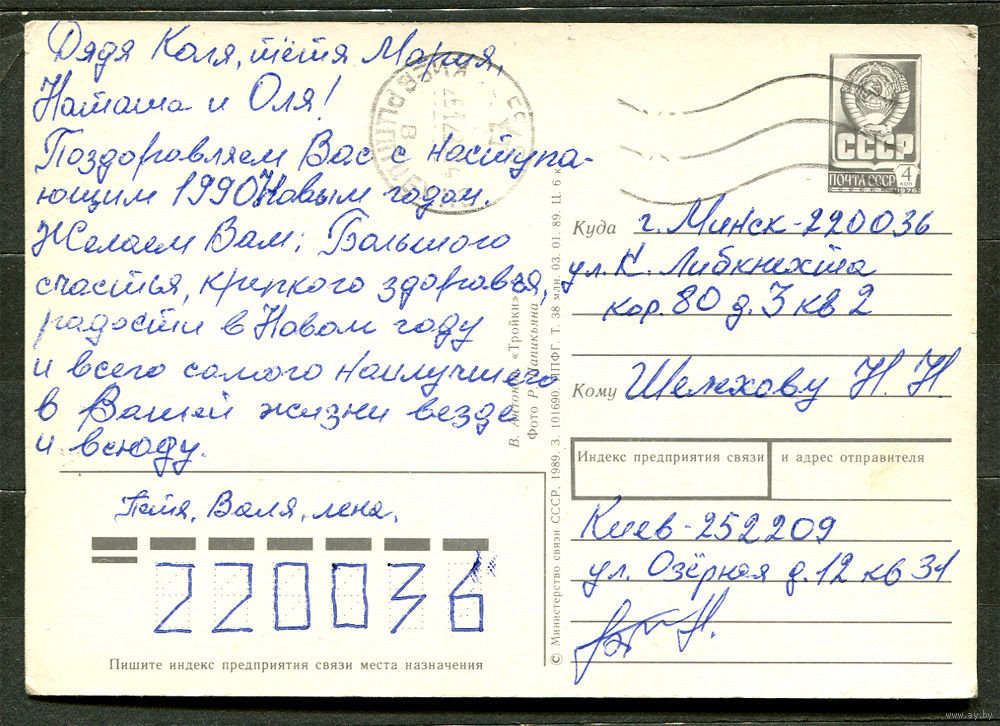 Дядя Коля, тётя Мария,
Наташа и Оля!
Поздоровляем Вас с наступа-
ющим 1990 Новым годом.
Желаем Вам: Большого
счастья, крепкого здоровья,
радости в Новом году
и всего самого наилучшего
в Вашей жизни везде
и всюду.
Петя, Валя, лена,
220036
Пишите индекс предприятия связи места назначения
В. «Тройки»
Фото
© Министерство связи СССР, 1989. З. 101690. ППФГ. Т. 38 млн. 03. 01. 89. Ц. 6 к
СССР
ПОЧТА СССР 4 коп
1976
Куда г. Минск-220036
ул. К. Либкнехта
кор. 80 д. 3 кв 2
Кому Шелюхову Н. Н
Индекс предприятия связи и адрес отправителя
Киев-252209
ул. Озёрная д. 12 кв 31
www.ay.by